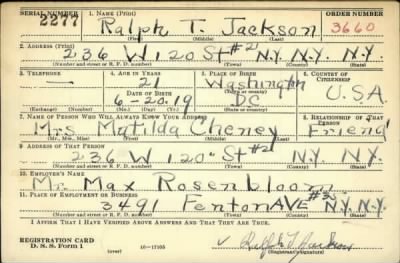 SERIAL NUMBER 1. NAME (Print) ORDER NUMBER
2277 Ralph T. Jackson 3660
(First) (Middle) (Last)
2. ADDRESS (Print)
236 W 120 St #21 N.Y. N.Y. N.Y.
(Number and street or R. F. D. number) (Town) (County) (State)
3. TELEPHONE 4. AGE IN YEARS 5. PLACE OF BIRTH 6. COUNTRY OF CITIZENSHIP
— 21 Washington
DATE OF BIRTH (Town or county)
6-20-19 DC U.S.A
(Exchange) (Number) (Mo.) (Day) (Yr.) (State or country)
7. NAME OF PERSON WHO WILL ALWAYS KNOW YOUR ADDRESS 8. RELATIONSHIP OF THAT PERSON
Mrs Matilda Cheney Friend
(Mr., Mrs., Miss) (First) (Middle) (Last)
9. ADDRESS OF THAT PERSON
236 W 120" St #21 N.Y. N.Y.
(Number and street or R. F. D. number) (Town) (County) (State)
10. EMPLOYER'S NAME
Mr. Max Rosenbloom
11. PLACE OF EMPLOYMENT OR BUSINESS
3491 Fenton AVE N.Y. N.Y.
(Number and street or R. F. D. number) (Town) (County) (State)
I AFFIRM THAT I HAVE VERIFIED ABOVE ANSWERS AND THAT THEY ARE TRUE.
REGISTRATION CARD
D. S. S. Form 1 (over) 16-17105 Ralph T Jackson